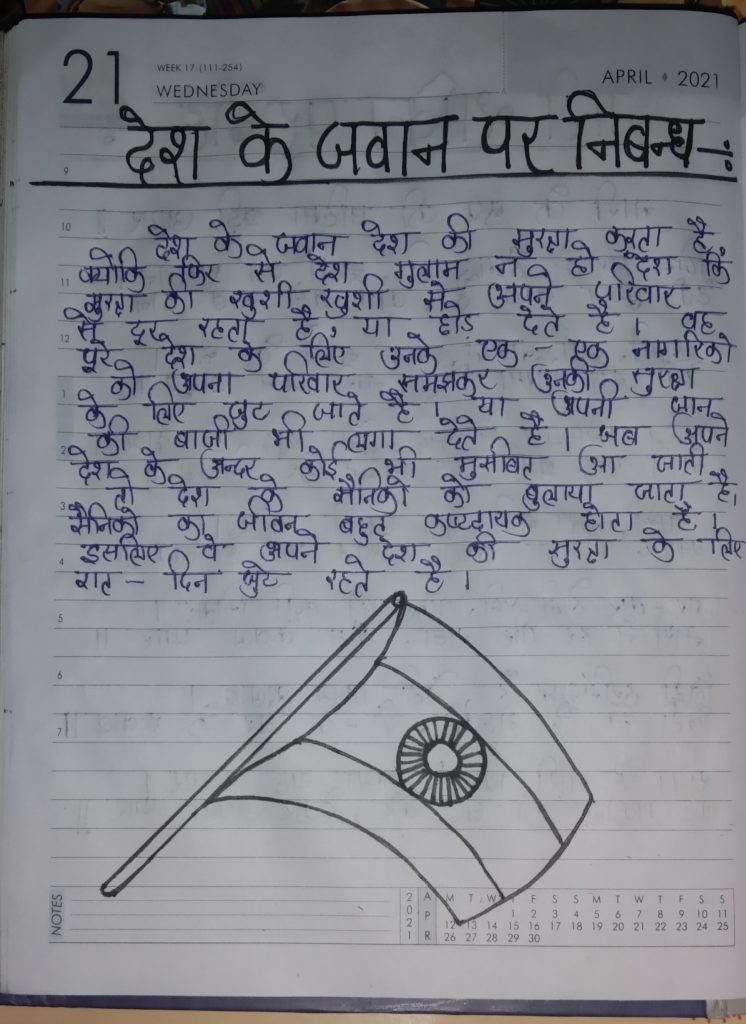 21
WEEK 17 (111-254)
WEDNESDAY
APRIL • 2021
देश के जवान पर निबन्ध-:
9
10
देश के जवान देश की सुरक्षा करता है
क्योकि फिर से देश गुलाम न हो देश कि
11
सुरक्षा की खुशी खुशी से अपने परिवार
से दूर रहता है, या छोड़ देते है। वह
12
पूरे देश के लिए उनके एक - एक नागरिको
को अपना परिवार समझकर उनकी सुरक्षा
1
के लिए जुट जाते है। या अपनी जान
की बाजी भी लगा देते है। जब अपने
2
देश के अन्दर कोई भी मुसीबत आ जाती
तो देश के सैनिको को बुलाया जाता है,
3
सैनिको का जीवन बहुत कष्टदायक होता है।
इसलिए वे अपने देश की सुरक्षा के लिए
4
रात - दिन जुटे रहते है।
5
6
7
NOTES
2021
APR
M T W T F S S M T W T F S S
1 2 3 4 5 6 7 8 9 10 11
12 13 14 15 16 17 18 19 20 21 22 23 24 25
26 27 28 29 30